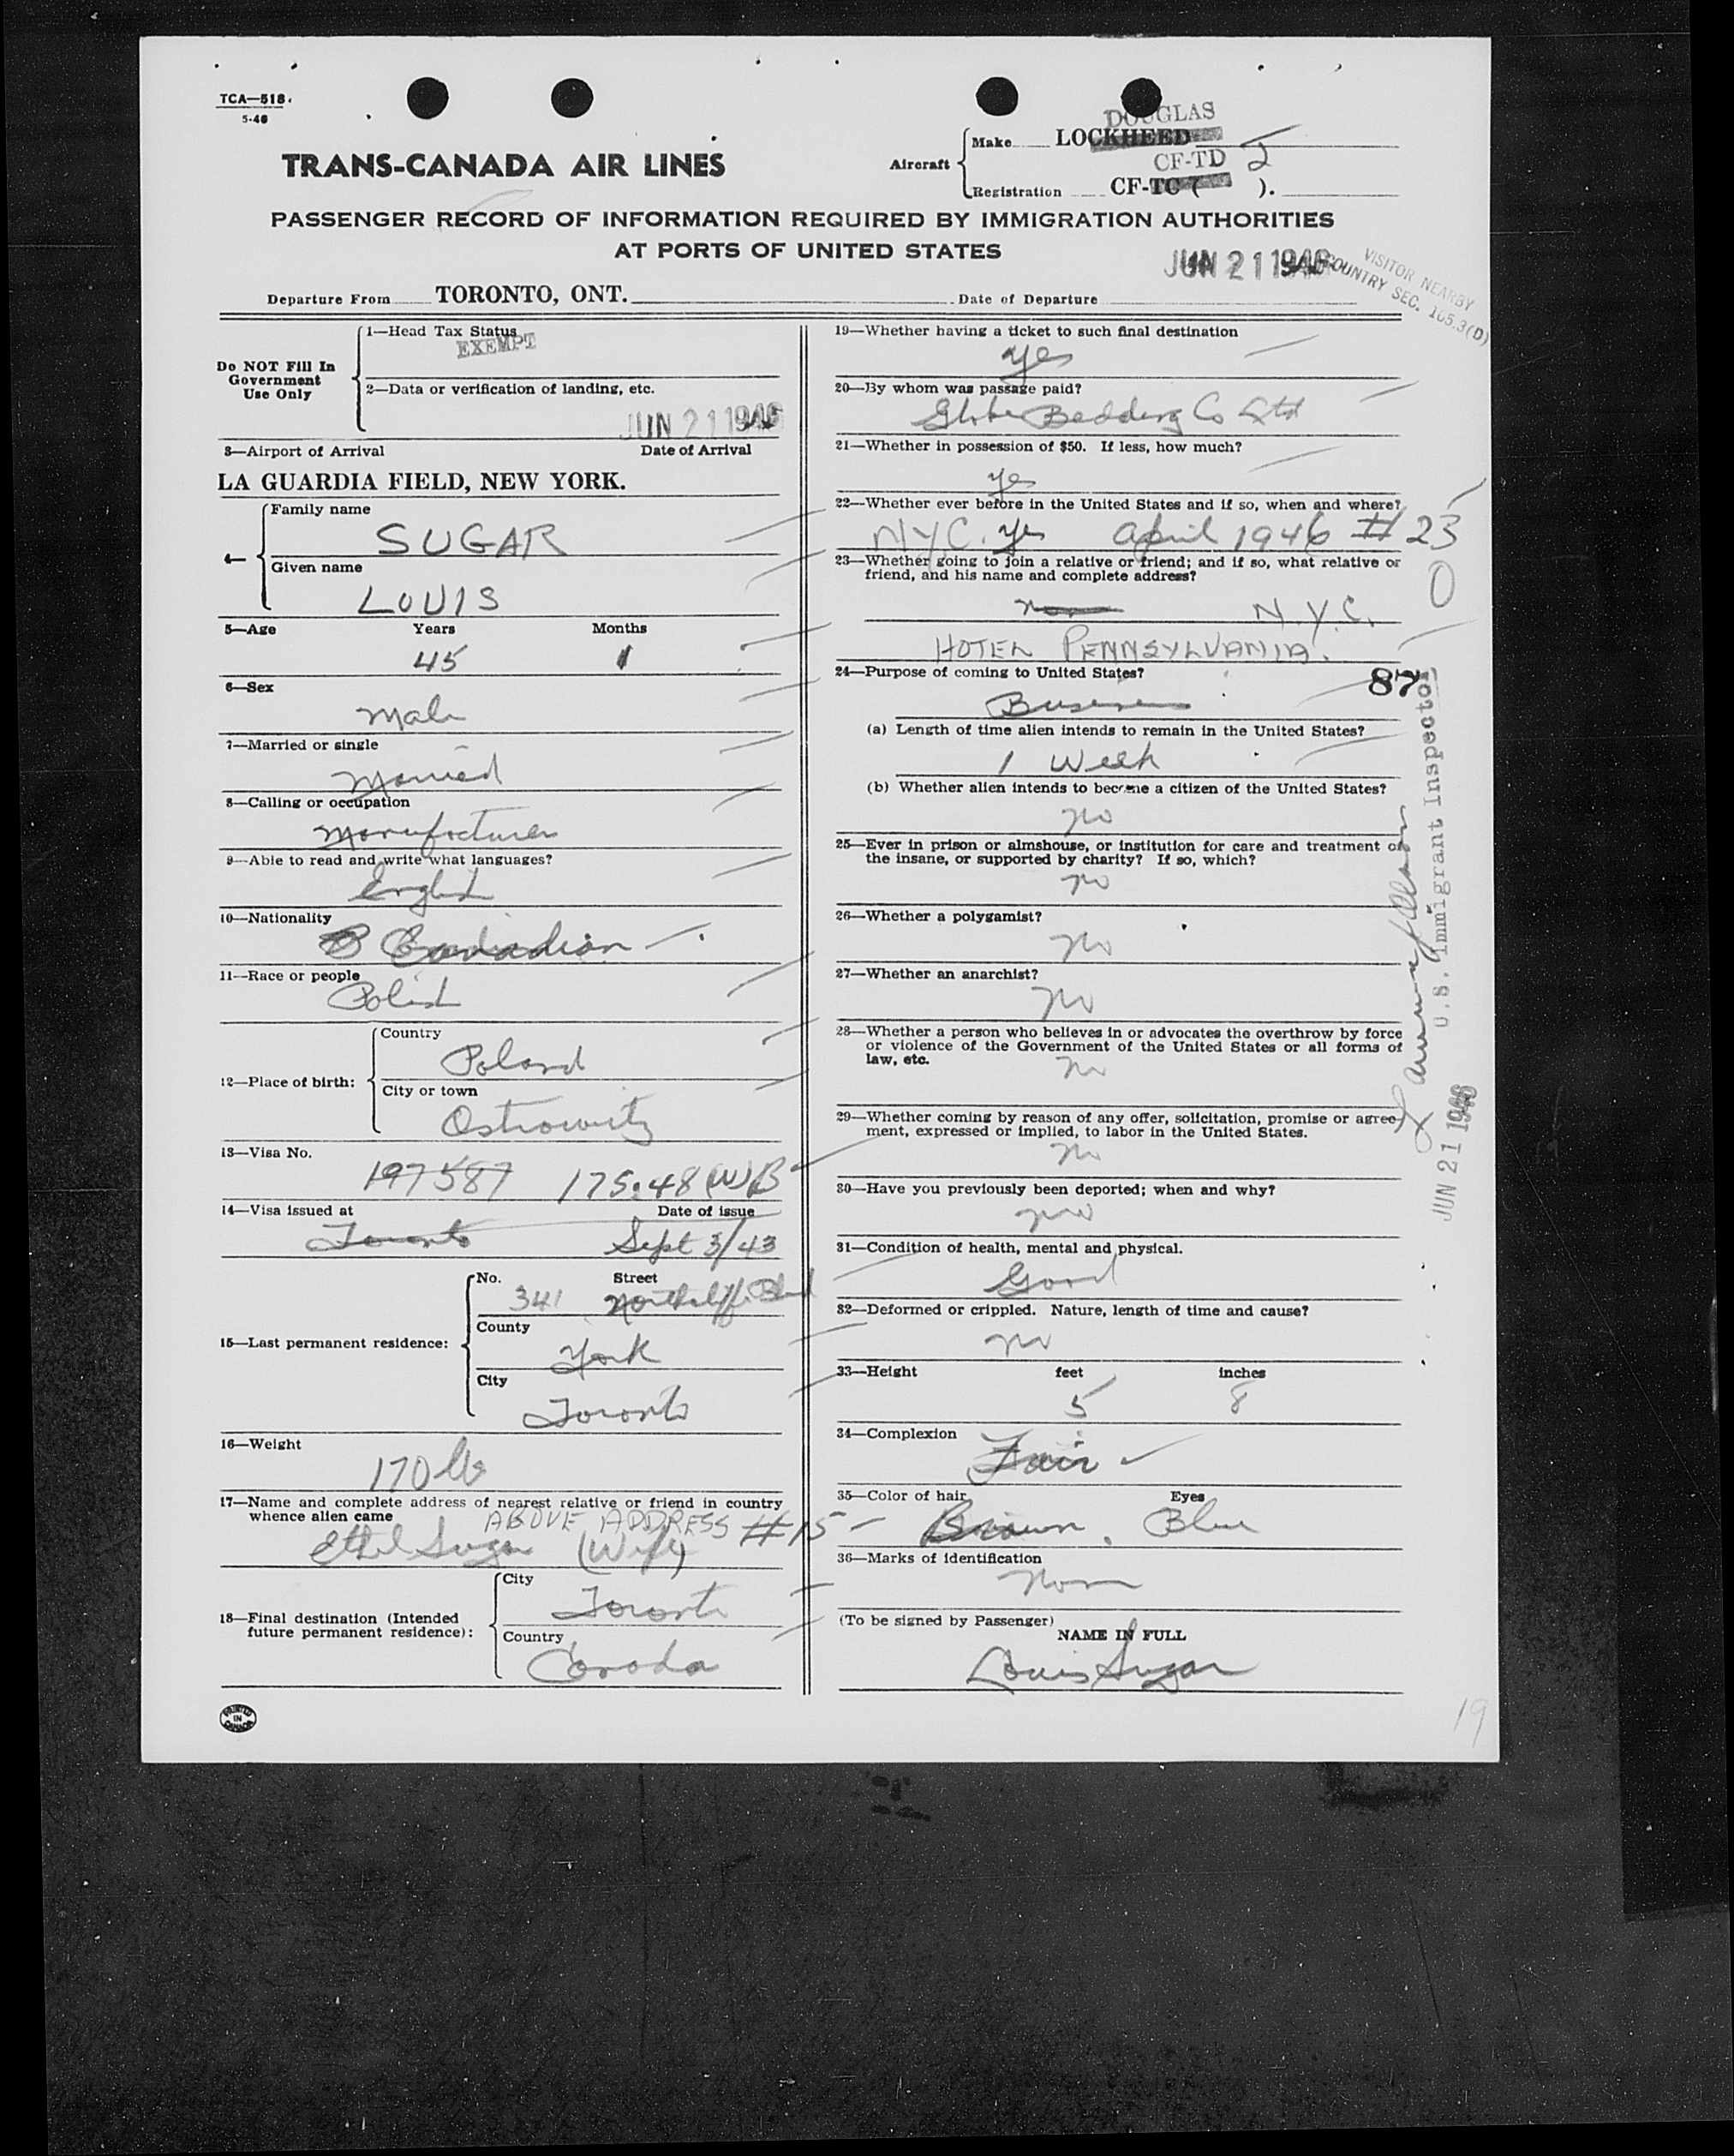 TCA—518
5-46
DOUGLAS
Make LOCKHEED
TRANS-CANADA AIR LINES
Aircraft
CF-TD
Registration CF-TC ( ).
PASSENGER RECORD OF INFORMATION REQUIRED BY IMMIGRATION AUTHORITIES
AT PORTS OF UNITED STATES
JUN 21 1946
VISITOR NEARBY
COUNTRY SEC. 165.3(D)
Departure From TORONTO, ONT. Date of Departure
Do NOT Fill In
Government
Use Only
1—Head Tax Status
EXEMPT
2—Data or verification of landing, etc.
JUN 21 1946
3—Airport of Arrival Date of Arrival
LA GUARDIA FIELD, NEW YORK.
4—
Family name
SUGAR
Given name
LOUIS
5—Age Years Months
45 1
6—Sex
Male
7—Married or single
Married
8—Calling or occupation
Manufacturer
9—Able to read and write what languages?
English
10—Nationality
Canadian
11—Race or people
Polish
12—Place of birth:
Country
Poland
City or town
Ostrowitz
13—Visa No.
197587 175.48 (W)B
14—Visa issued at Date of issue
Toronto Sept 3/43
15—Last permanent residence:
No. Street
341 Northcliffe Blvd
County
York
City
Toronto
16—Weight
170 lbs
17—Name and complete address of nearest relative or friend in country
whence alien came
ABOVE ADDRESS #15
Ethel Sugar (Wife)
18—Final destination (Intended
future permanent residence):
City
Toronto
Country
Canada
PRINTED
IN
CANADA
19—Whether having a ticket to such final destination
Yes
20—By whom was passage paid?
Globe Bedding Co Ltd
21—Whether in possession of $50. If less, how much?
Yes
22—Whether ever before in the United States and if so, when and where?
N.Y.C. Yes April 1946 #23
23—Whether going to join a relative or friend; and if so, what relative or
friend, and his name and complete address?
0
N.Y.C.
HOTEL PENNSYLVANIA.
24—Purpose of coming to United States?
87
Business
(a) Length of time alien intends to remain in the United States?
1 Week
(b) Whether alien intends to become a citizen of the United States?
no
25—Ever in prison or almshouse, or institution for care and treatment of
the insane, or supported by charity? If so, which?
no
26—Whether a polygamist?
no
27—Whether an anarchist?
no
28—Whether a person who believes in or advocates the overthrow by force
or violence of the Government of the United States or all forms of
law, etc.
no
29—Whether coming by reason of any offer, solicitation, promise or agree-
ment, expressed or implied, to labor in the United States.
no
30—Have you previously been deported; when and why?
no
31—Condition of health, mental and physical.
Good
32—Deformed or crippled. Nature, length of time and cause?
no
33—Height feet inches
5 8
34—Complexion
Fair
35—Color of hair Eyes
Brown Blue
36—Marks of identification
None
(To be signed by Passenger)
NAME IN FULL
Louis Sugar
U.S. Immigrant Inspector
JUN 21 1946
19